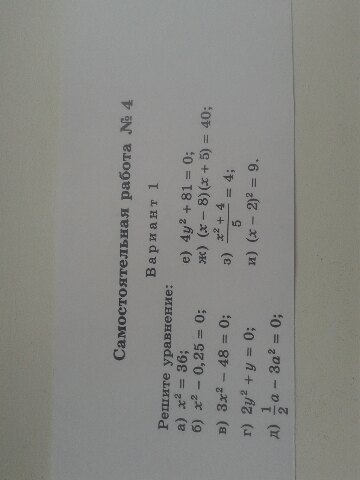 Самостоятельная работа № 4
Вариант 1
Решите уравнение:
а) x² = 36;
б) x² − 0,25 = 0;
в) 3x² − 48 = 0;
г) 2y² + y = 0;
д) 1/2 a − 3a² = 0;
е) 4y² + 81 = 0;
ж) (x − 8)(x + 5) = 40;
з) (x² + 4)/5 = 4;
и) (x − 2)² = 9.